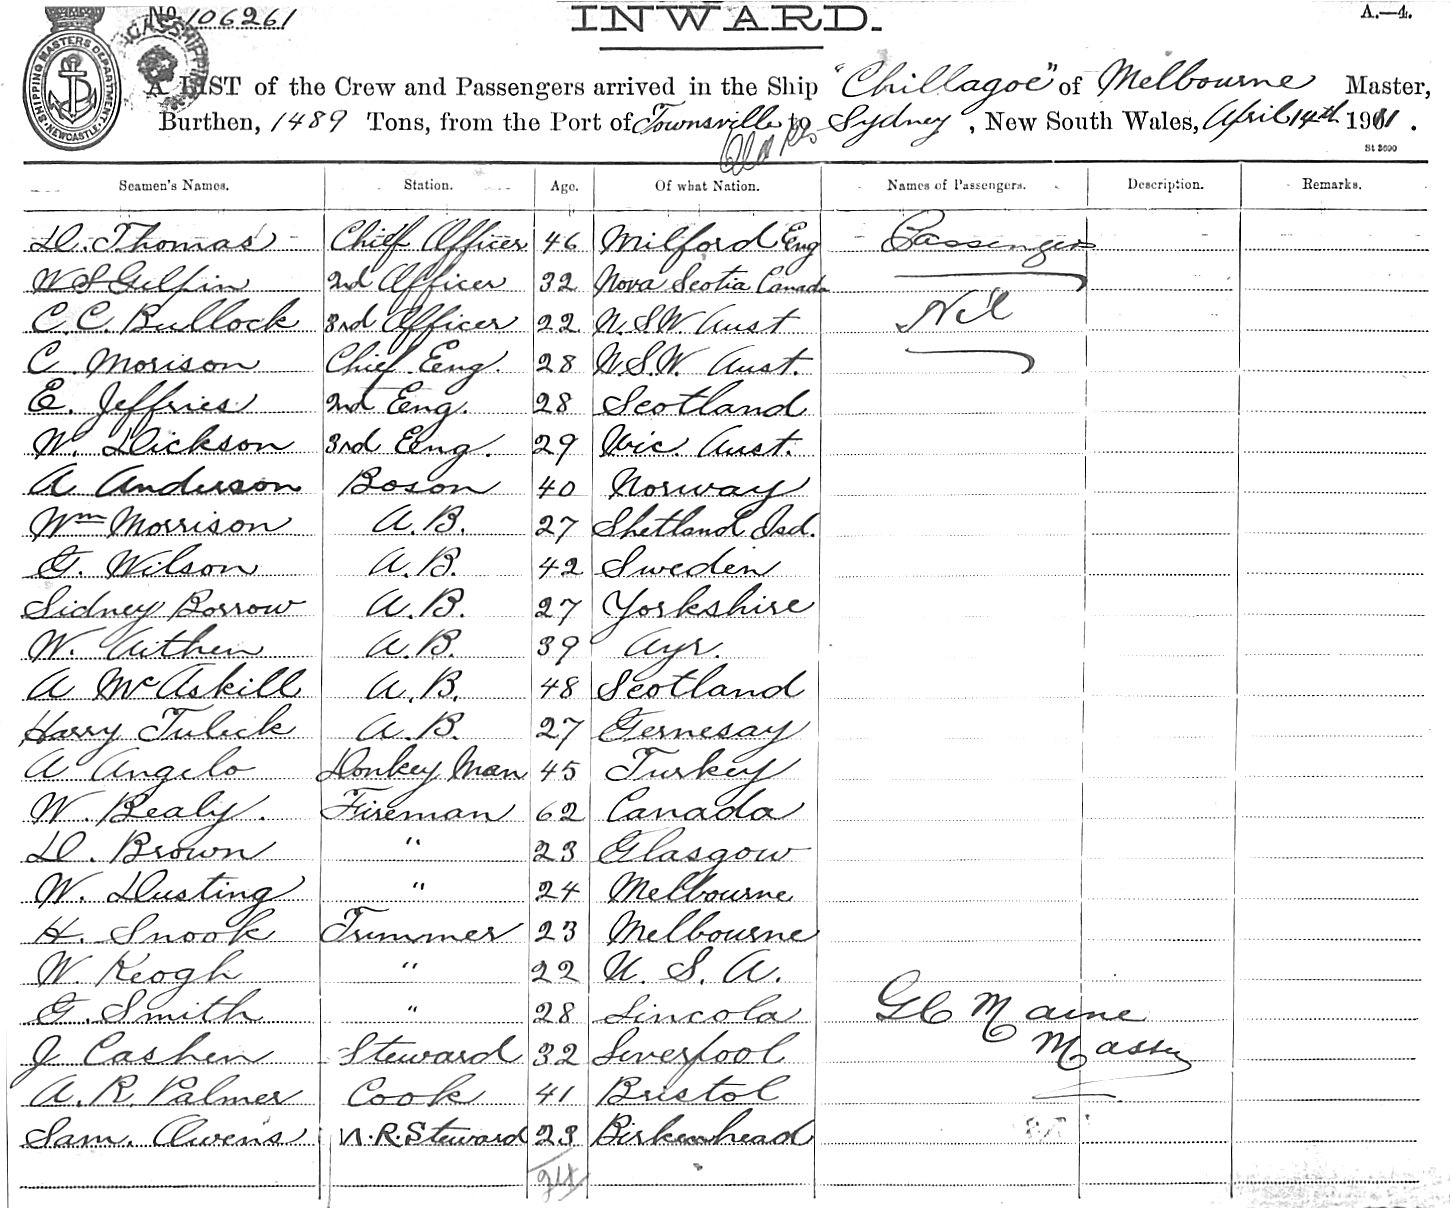 No 106261
INWARD.
A.—4.
SHIPPING MASTERS DEPARTMENT NEWCASTLE
A LIST of the Crew and Passengers arrived in the Ship "Chillagoe" of Melbourne Master,
Burthen, 1489 Tons, from the Port of Townsville to Sydney, New South Wales, April 14th 1911.
St 3690
Seamen's Names. Station. Age. Of what Nation. Names of Passengers. Description. Remarks.
D. Thomas Chief Officer 46 Milford Eng Passengers
W S Gilpin 2nd Officer 32 Nova Scotia Canada
C. C. Bullock 3rd Officer 22 N.S.W Aust Nil
C. Morison Chief Eeng. 28 N.S.W. Aust.
E. Jeffries 2nd Eeng. 28 Scotland
W. Dickson 3rd Eeng. 29 Vic. Aust.
A Anderson Boson 40 Norway
Wm Morrison A.B. 27 Shetland Isd.
G. Wilson A.B. 42 Sweden
Sidney Borrow A.B. 27 Yorkshire
W. Aithen A.B. 39 Ayr.
A McAskill A.B. 48 Scotland
Harry Tulick A.B. 27 Gernesay
A Angelo Donkey Man 45 Turkey
W. Bealy. Fireman 62 Canada
D. Brown " 23 Glasgow
W. Dusting " 24 Melbourne
H. Snook Trimmer 23 Melbourne
W. Keogh " 22 U.S.A.
G. Smith " 28 Lincola
G C Maine
J Cashen Steward 32 Liverpool
A. R. Palmer Cook 41 Bristol
Sam. Owens N.R. Steward 23 Birkenhead
24